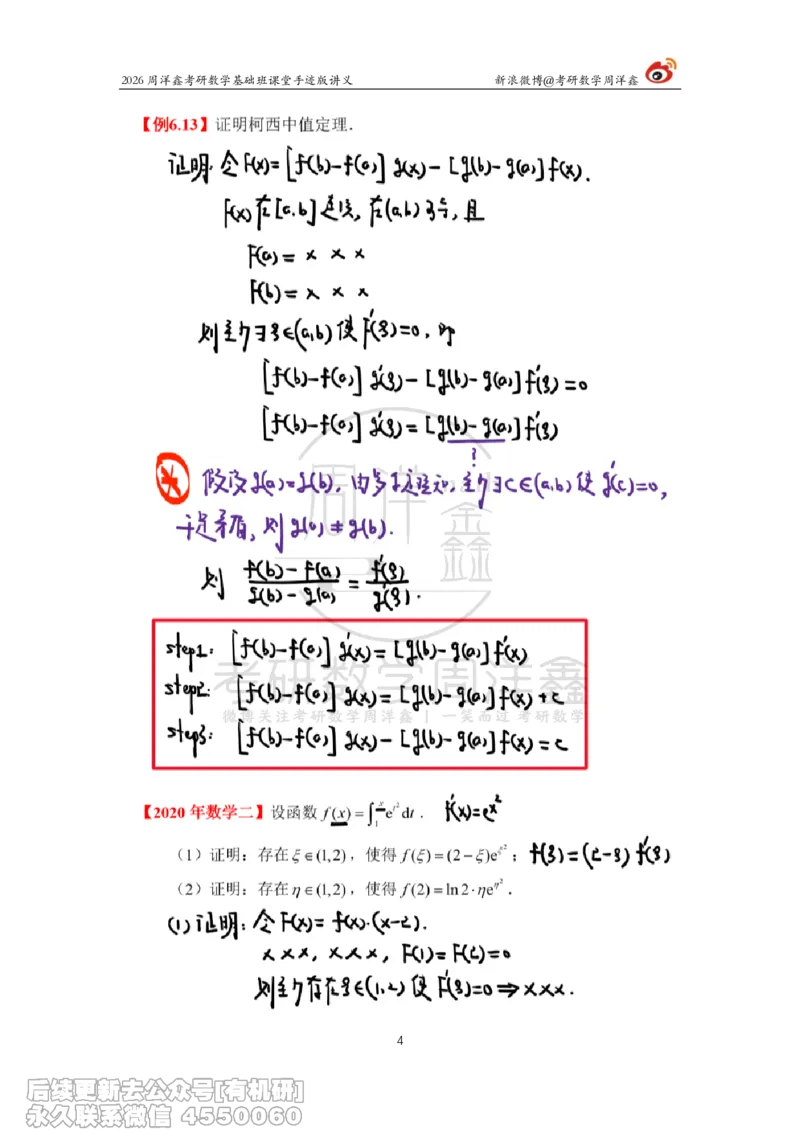 2026 周洋鑫考研数学基础班课堂手迹版讲义 新浪微博@考研数学周洋鑫
【例6.13】证明柯西中值定理.
证明: 令 F(x)=[f(b)-f(a)] g(x)-[g(b)-g(a)] f(x).
F(x) 在 [a,b] 连续, 在 (a,b) 可导, 且
F(a)= x x x
F(b)= x x x
则至少∃ξ∈(a,b) 使 F'(ξ)=0, 即
[f(b)-f(a)] g'(ξ)-[g(b)-g(a)] f'(ξ)=0
[f(b)-f(a)] g'(ξ)=[g(b)-g(a)] f'(ξ)
?
假设 g(a)=g(b), 由罗尔定理知, 至少∃c∈(a,b) 使 g'(c)=0,
于是矛盾, 则 g(a)≠g(b).
则 \frac{f(b)-f(a)}{g(b)-g(a)} = \frac{f'(ξ)}{g'(ξ)}.
step1: [f(b)-f(a)] g'(x)=[g(b)-g(a)] f'(x)
step2: [f(b)-f(a)] g(x)=[g(b)-g(a)] f(x)+c
step3: [f(b)-f(a)] g(x)-[g(b)-g(a)] f(x)=c
周洋鑫
考研数学周洋鑫
微博关注考研数学周洋鑫 | 一笑而过 考研数学
【2020 年数学二】设函数 f(x)=∫₁ˣ e^{t²}dt. f'(x)=e^{x²}
（1）证明：存在 ξ∈(1,2)，使得 f(ξ)=(2-ξ)e^{ξ²}； f(ξ)=(2-ξ) f'(ξ)
（2）证明：存在 η∈(1,2)，使得 f(2)=ln2·ηe^{η²}.
(1) 证明: 令 F(x)=f(x)·(x-2).
x x x, x x x, F(1)=F(2)=0
则至少存在 ξ∈(1,2) 使 F'(ξ)=0 ⇒ x x x.
4
后续更新去公众号[有机研]
永久联系微信 4550060